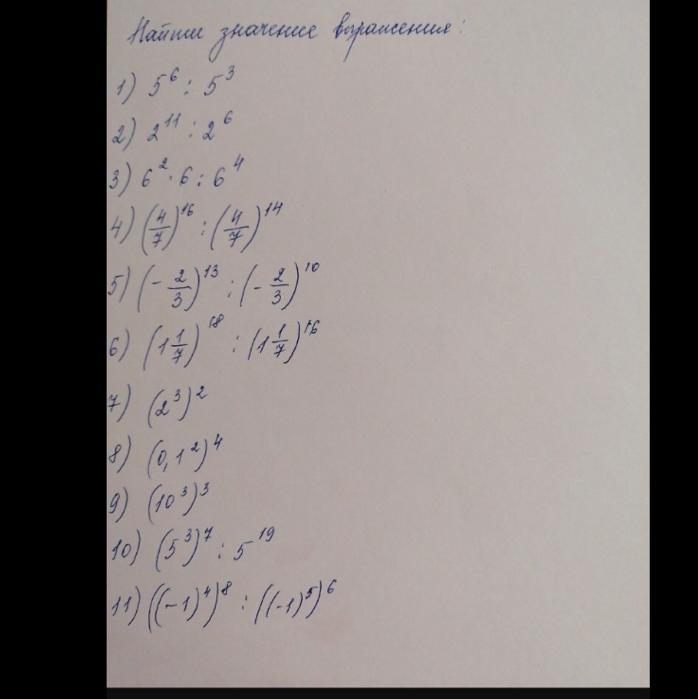 Найти значение выражения:
1) 5⁶ : 5³
2) 2¹¹ : 2⁶
3) 6² · 6 : 6⁴
4) (4/7)¹⁶ : (4/7)¹⁴
5) (-2/3)¹³ : (-2/3)¹⁰
6) (1 1/7)¹⁸ : (1 1/7)¹⁶
7) (2³)²
8) (0,1²)⁴
9) (10³)³
10) (5³)⁷ : 5¹⁹
11) ((-1)⁴)⁸ : ((-1)⁵)⁶